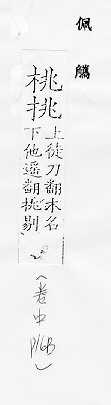 佩觿
桃挑
上徒刀翻木名
下他遥翻挑剔
(卷中
P16B)